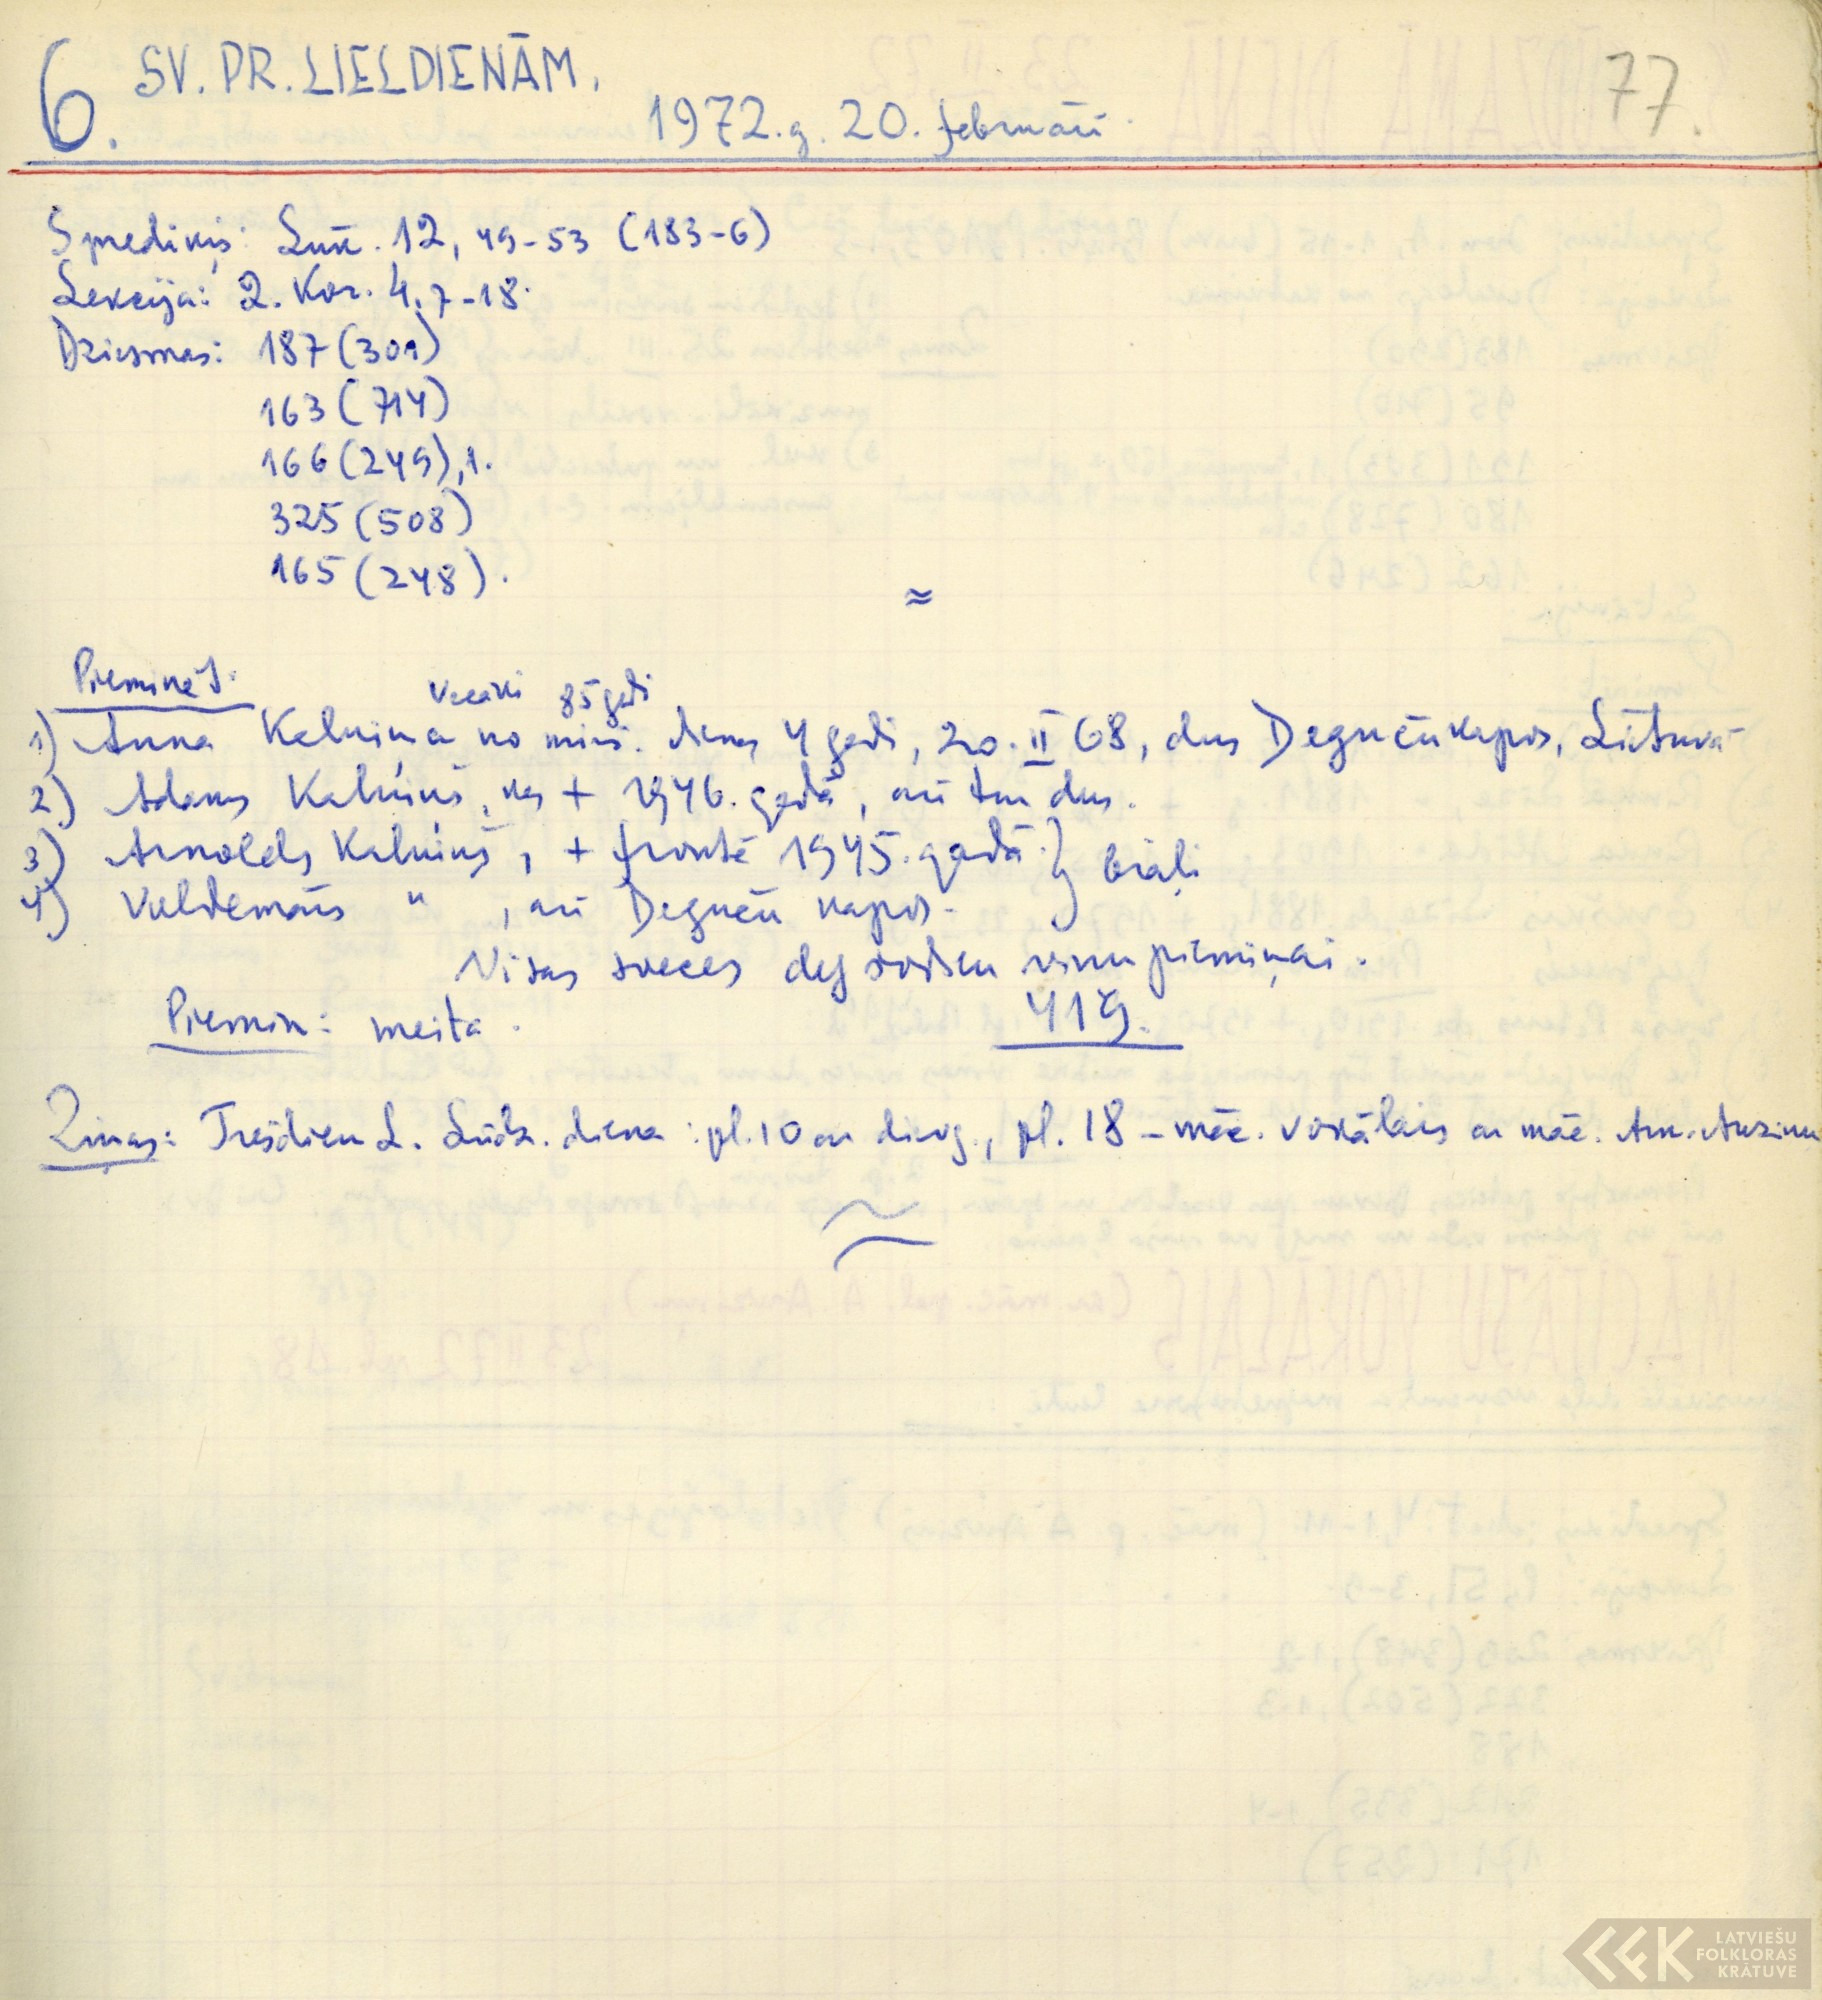 77.
6. SV. PR. LIELDIENĀM.
1972. g. 20. februārī.
Sprediķis: Lūk. 12, 49-53 (183-6)
Lekcija: 2. Kor. 4, 7-18.
Dziesmas: 187 (301)
163 (714)
166 (249), 1.
325 (508)
165 (248).
≈
Pieminēt:
Vecāki 85 gadi
1) Anna Kalniņa no mirš. dienas 4 gadi, 20. II 68, dus Degučū kapos, Lietuvā
2) Adams Kalniņš, kas + 1946. gadā, arī tur dus.
3) Arnolds Kalniņš, + frontē 1945. gadā } brāļi
4) Valdemārs " , arī Degučū kapos.
Visas sveces deg šodien viņu piemiņai.
Piemin: meita.
419.
Ziņas: Trešdien L. Lūdz. diena: pl. 10 ar dievg., pl. 18 - māc. vokālais ar māc. Am. Auziņu
LATVIEŠU
FOLKLORAS
KRĀTUVE